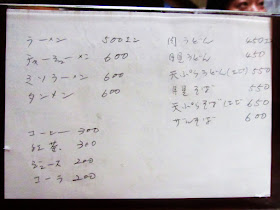 ラーメン 500エン
チャーシューメン 600
ミソラーメン 600
タンメン 600
コーヒー 300
紅茶 300
ジュース 200
コーラ 200
肉うどん 450エン
月見うどん 450
天ぷらうどん 550
月見そば 550
天ぷらそば 650
ザルそば 600